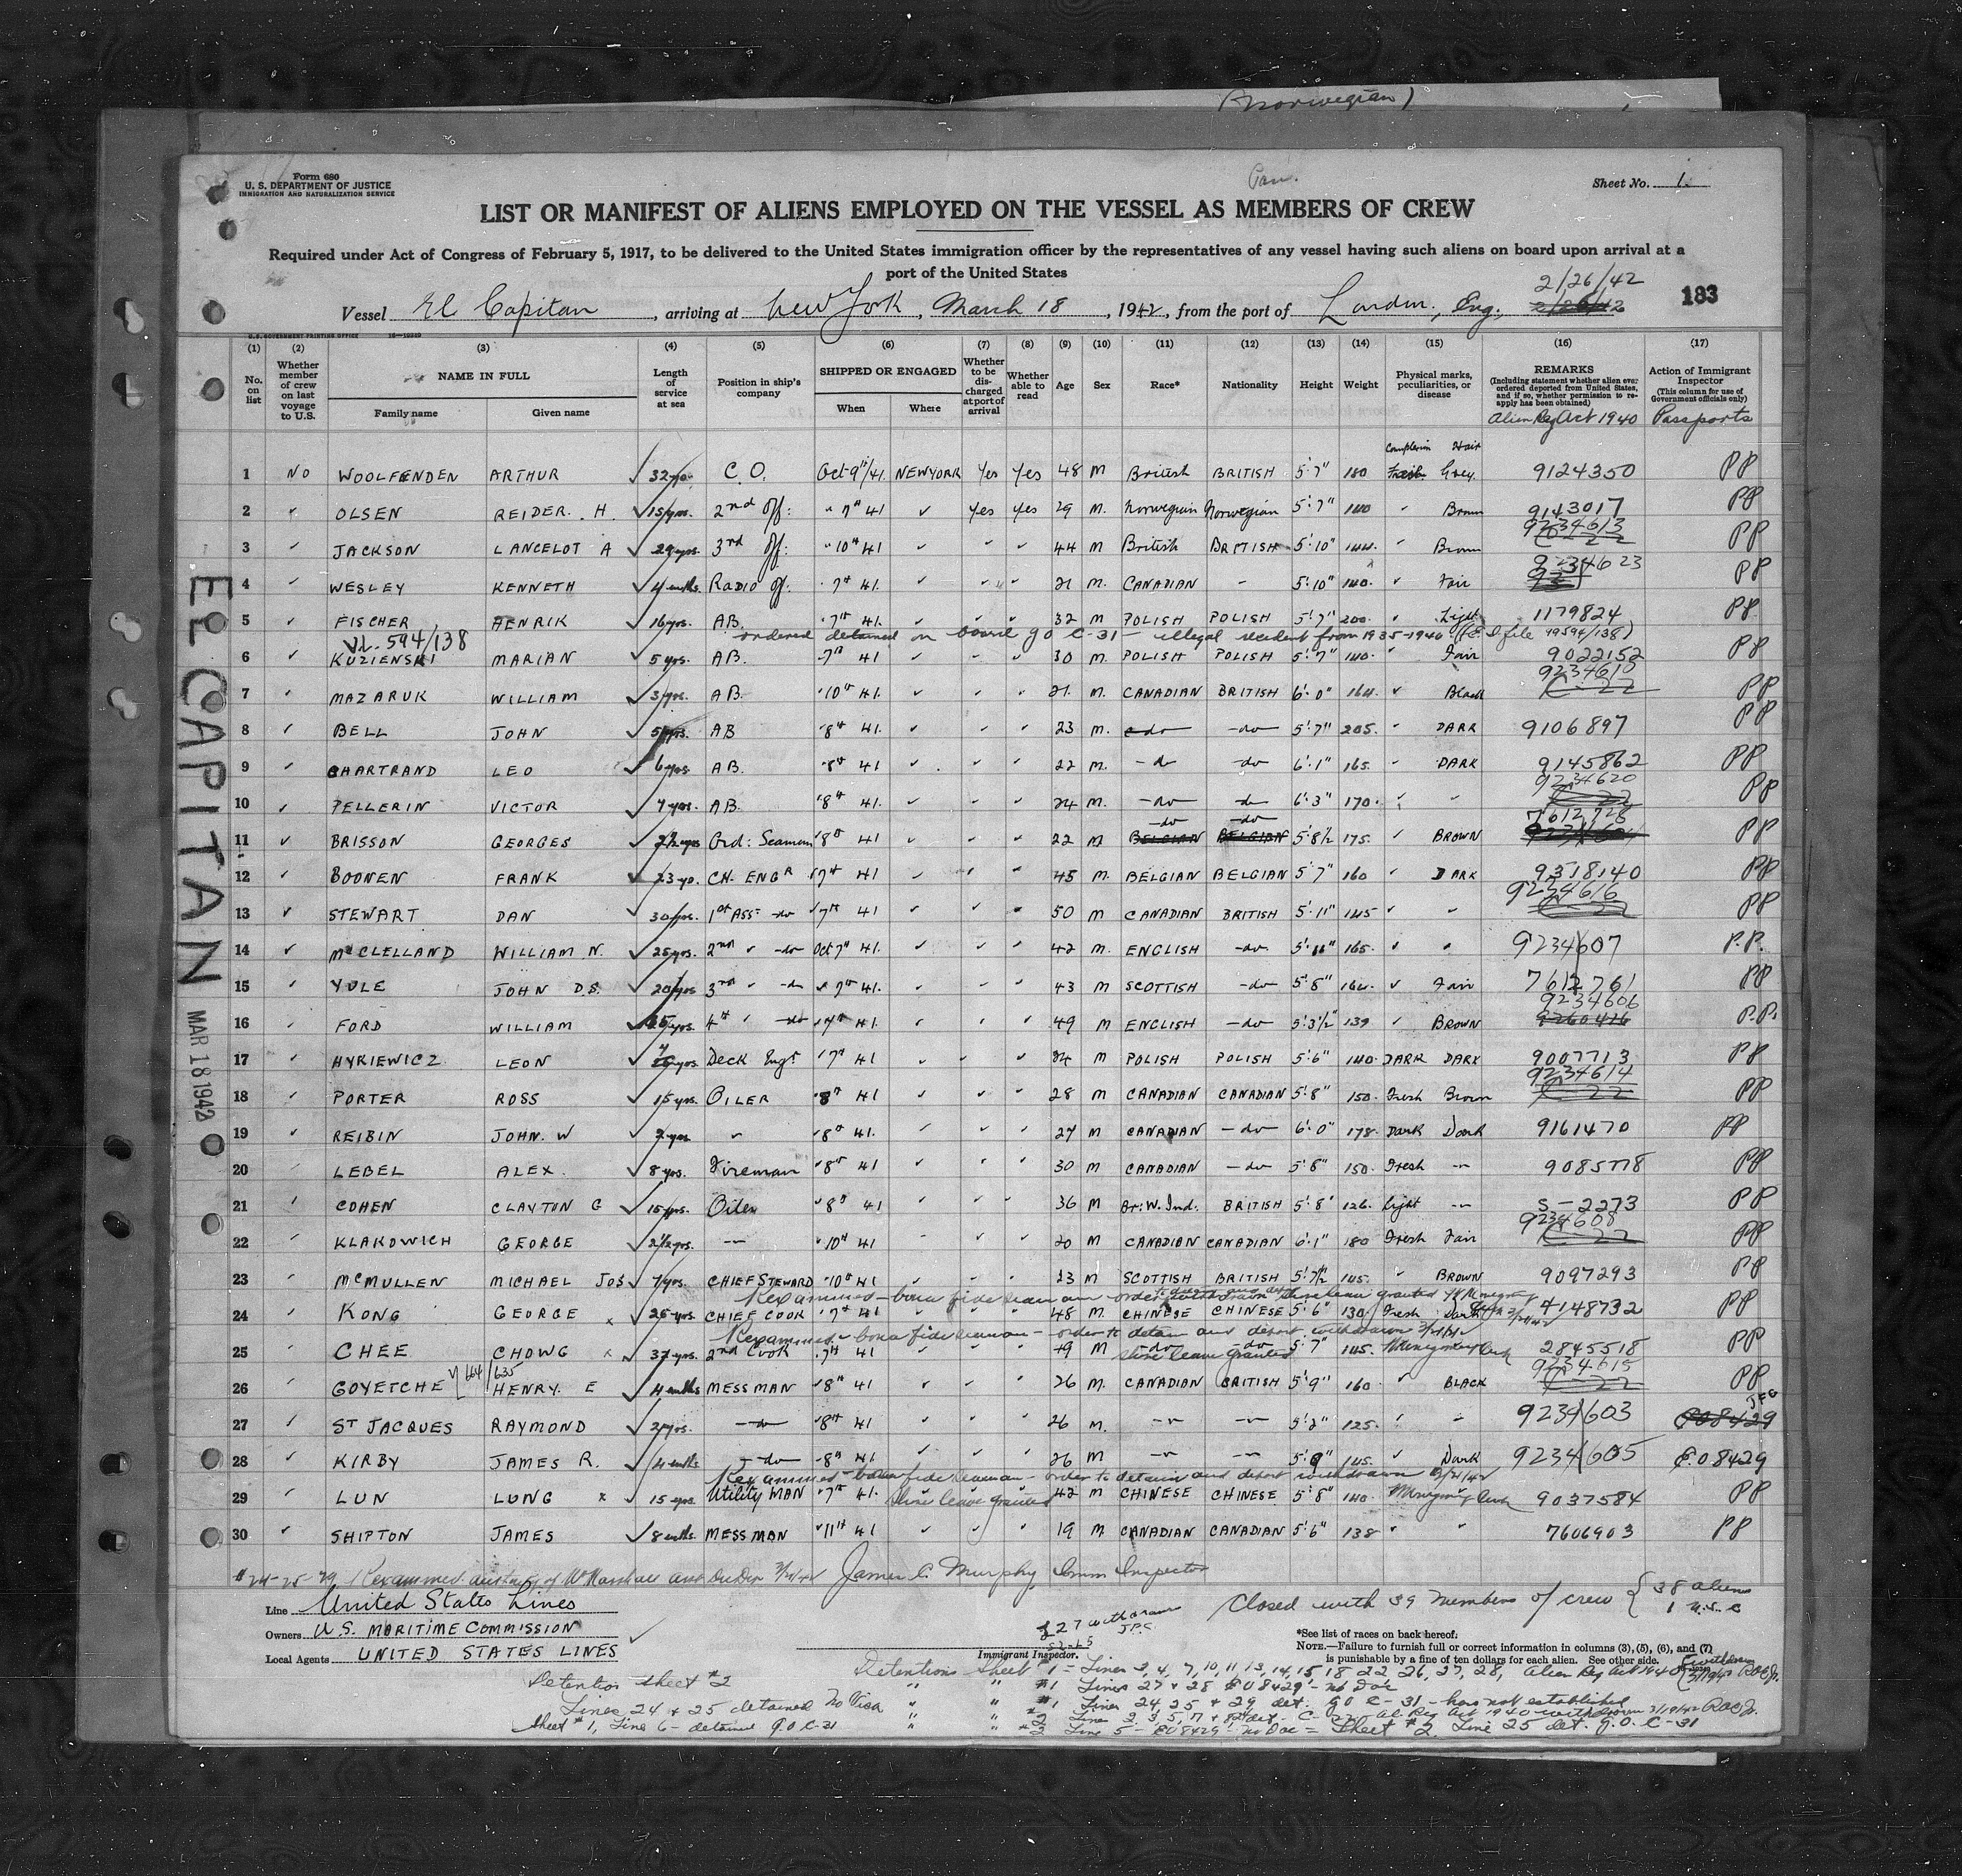 (Norwegian)
Form 680
U. S. DEPARTMENT OF JUSTICE
IMMIGRATION AND NATURALIZATION SERVICE
Pan.
Sheet No. 1.
LIST OR MANIFEST OF ALIENS EMPLOYED ON THE VESSEL AS MEMBERS OF CREW
Required under Act of Congress of February 5, 1917, to be delivered to the United States immigration officer by the representatives of any vessel having such aliens on board upon arrival at a
port of the United States
2/26/42
Vessel El Capitan, arriving at New York, March 18, 1942, from the port of London, Eng., 183
U.S. GOVERNMENT PRINTING OFFICE
(1) (2) (3) (4) (5) (6) (7) (8) (9) (10) (11) (12) (13) (14) (15) (16) (17)
No. on list
Whether member of crew on last voyage to U.S.
NAME IN FULL
Family name Given name
Length of service at sea
Position in ship's company
SHIPPED OR ENGAGED
When Where
Whether to be discharged at port of arrival
Whether able to read
Age Sex Race* Nationality Height Weight
Physical marks, peculiarities, or disease
REMARKS
(Including statement whether alien ever ordered deported from United States, and if so, whether permission to reapply has been obtained)
Alien Reg Act 1940
Action of Immigrant Inspector
(This column for use of Government officials only)
Passports
Complexion Hair
1 NO WOOLFENDEN ARTHUR 32 yrs. C.O. Oct 9th/41. NEW YORK Yes Yes 48 M British BRITISH 5'7" 180 Fresh Grey. 9124350 PP
2 OLSEN REIDER. H. 15 yrs. 2nd Off: " 7th 41 Yes Yes 29 M. Norwegian Norwegian 5'7" 140 Brown 9143017 PP
9234613
3 JACKSON LANCELOT A 29 yrs. 3rd Off: " 10th 41 44 M British BRITISH 5'10" 144. Brown C-22 PP
9234623
4 WESLEY KENNETH 4 mths. RADIO Of. 7th 41. 21 M. CANADIAN - 5'10" 140. Fair PP
5 FISCHER HENRIK 16 yrs. AB. 7th 41. 32 M POLISH POLISH 5'7" 200. Light 1179824 PP
ordered detained on board GO C-31 - illegal resident from 1935-1940
VL. 594/138
6 KUZIENSKI MARIAN 5 yrs. AB. 7th 41 30 M. POLISH POLISH 5'7" 140. Fair 9022152 PP
9234610
7 MAZARUK WILLIAM 3 yrs. AB. 10th 41. 21. M. CANADIAN BRITISH 6'0" 164. Black C-22 PP
8 BELL JOHN 5 yrs. AB 8th 41. 23 M. -do- -do- 5'7" 205. DARK 9106897 PP
9 CHARTRAND LEO 6 yrs. AB. 8th 41 22 M. -do- -do- 6'1" 165. DARK 9145862 PP
9234620
10 PELLERIN VICTOR 7 yrs. AB. 8th 41. 24 M. -do- -do- 6'3" 170. C-22 PP
-do- -do- 7612728
11 BRISSON GEORGES 2½ yrs Ord: Seaman 8th 41 22 M BELGIAN BELGIAN 5'8½ 175. BROWN PP
12 BOONEN FRANK 23 yo. CH. ENGR 7th 41 45 M. BELGIAN BELGIAN 5'7" 160 DARK 9318140 PP
9234616
13 STEWART DAN 30 yrs. 1st ASST -do 7th 41 50 M CANADIAN BRITISH 5'11" 145 C-22 PP
14 McCLELLAND WILLIAM N. 25 yrs. 2nd -do Oct 7th 41. 42 M. ENGLISH -do- 165. 9234607 P.P.
15 YULE JOHN D.S. 20 yrs 3rd -do 7th 41. 43 M SCOTTISH -do- 5'8" 164. Fair 7612761 PP
9234606
16 FORD WILLIAM 25 yrs. 4th -do 7th 41. 49 M ENGLISH -do- 5'3½" 139 BROWN 9260416 P.P.
17 HYRIEWICZ LEON yrs. Deck Engr 7th 41 24 M POLISH POLISH 5'6" 140. DARK DARK 9007713 PP
9234614
18 PORTER ROSS 15 yrs. OILER 8th 41 28 M CANADIAN CANADIAN 5'8" 150. Fresh Brown C-22 PP
19 REIBIN JOHN. W 2 yrs 8th 41. 27 M CANADIAN -do- 6'0" 178. Dark Dark 9161470 PP
20 LEBEL ALEX. 8 yrs. Fireman 8th 41 30 M CANADIAN -do- 5'8" 150. Fresh 9085778 PP
21 COHEN CLAYTON G 15 yrs. Oiler 8th 41 36 M Br: W. Ind. BRITISH 5'8" 126. Light S-2273 PP
9234608
22 KLAKOWICH GEORGE 2½ yrs. 10th 41 20 M CANADIAN CANADIAN 6'1" 180 Fresh Fair C-22 PP
23 McMULLEN MICHAEL JOS 7 yrs. CHIEF STEWARD 10th 41 23 M SCOTTISH BRITISH 5'7½" 145. BROWN 9097293 PP
24 KONG GEORGE x 25 yrs. CHIEF COOK 7th 41 48 M. CHINESE CHINESE 5'6" 130 Fresh Dark 4148732 PP
Rexamined - bona fide seaman - order to detain and deport withdrawn 3/21/42
25 CHEE CHOWG x 37 yrs. 2nd Cook 7th 41 49 M -do- -do- 5'7" 145. 2845518 PP
shore leave granted
9234615
26 GOYETCHE HENRY. E 4 mths MESSMAN 8th 41 26 M. CANADIAN BRITISH 5'9" 160 BLACK C-22 PP
27 ST JACQUES RAYMOND 2 yrs. -do- 8th 41 26 M. 5'2" 125. 9234603 E08429
28 KIRBY JAMES R. 4 mths -do 8th 41. 26 M 5'9" 145. Dark 9234605 E.08429
Rexamined - bona fide seaman - order to detain and deport withdrawn 3/21/42
29 LUN LUNG x 15 yrs Utility MAN 7th 41. 42 M CHINESE CHINESE 5'8" 140. 9037584 PP
Shore leave granted
30 SHIPTON JAMES 8 mths. MESSMAN 11th 41 19 M CANADIAN CANADIAN 5'6" 138 7606903 PP
James C. Murphy Imm Inspector
Line United States Lines
Owners U.S. MARITIME COMMISSION
Local Agents UNITED STATES LINES
Immigrant Inspector.
27 withdrawn
Closed with 39 Members of crew { 38 aliens
1 U.S.C
*See list of races on back hereof.
NOTE.—Failure to furnish full or correct information in columns (3), (5), (6), and (7)
is punishable by a fine of ten dollars for each alien. See other side.
Detention Sheet #2
Lines 24 + 25 detained No Visa
Sheet #1, Line 6 - detained G.O C-31
Detentions Sheet #1 = Lines 3, 4, 7, 10, 11, 13, 14, 15 18 22 26, 27, 28, Alien Reg Act 1940
" " #1 Lines 27 + 28 E08429 - no Doc
" " #1 Lines 24 25 + 29 det. GO C-31 - has not established
" " #2 Line 5 - E08429 - no Doc = Sheet #2. Line 25 det. G.O. C-31
EL CAPITAN
MAR 18 1942